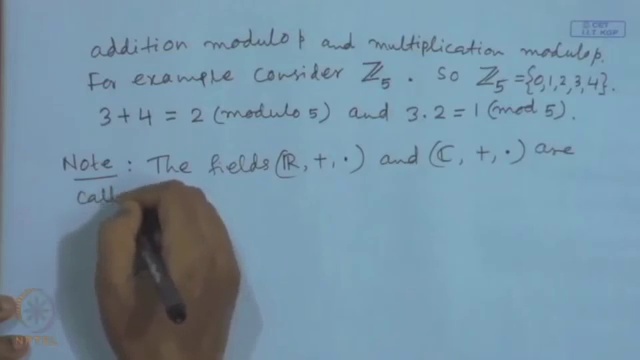 © CET
I.I.T. KGP
addition modulo p and multiplication modulo p.
For example consider ℤ₅ . So ℤ₅ = {0,1,2,3,4}.
3 + 4 = 2 (modulo 5) and 3.2 = 1 (mod 5).
Note : The fields (ℝ, +, ·) and (ℂ, +, ·) are
call
NPTEL